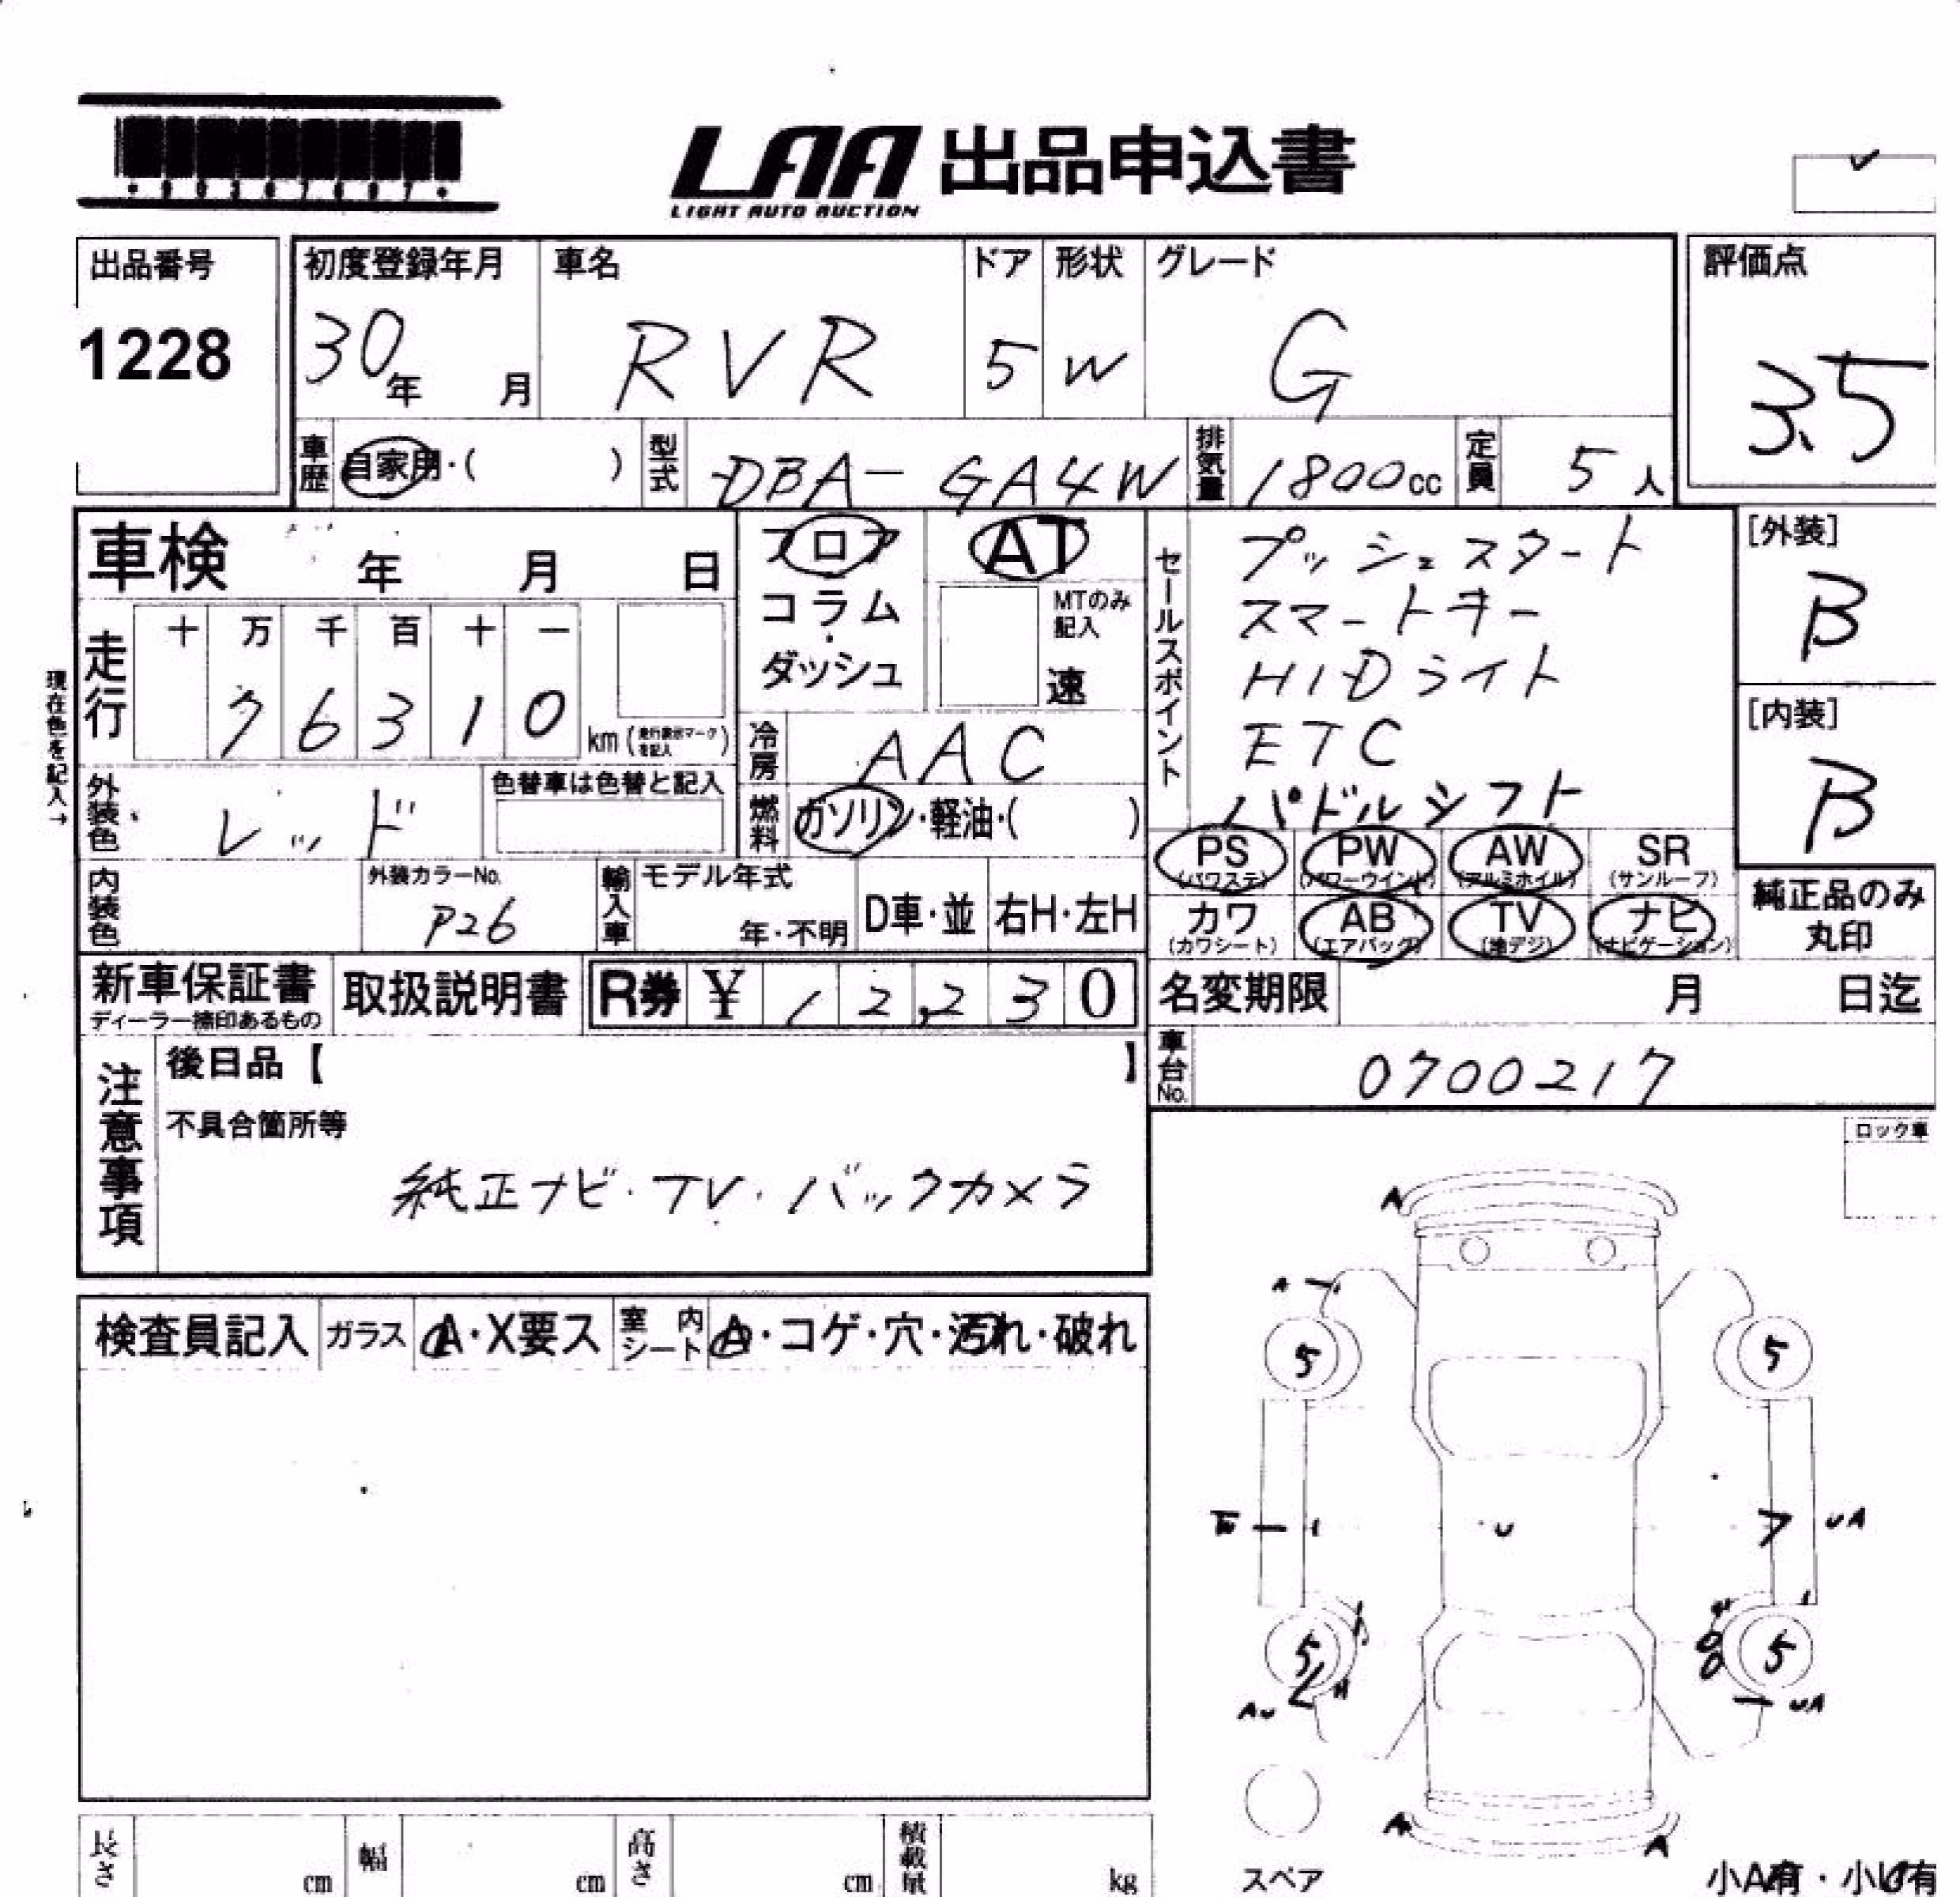 LAA 出品申込書
LIGHT AUTO AUCTION
出品番号
1228
初度登録年月
30年 月
車名
RVR
ドア
5
形状
W
グレード
G
評価点
3.5
車歴 自家用・( )
型式 DBA-GA4W
排気量 1800cc
定員 5人
車検 年 月 日
走行
十 万 千 百 十 一
7 6 3 1 0
km(走行表示マークを記入)
現在色を記入→
外装色 レッド
色替車は色替と記入
内装色
外装カラーNo.
P26
フロア
コラム
ダッシュ
AT
MTのみ記入
速
冷房 AAC
燃料 ガソリン・軽油・( )
輸入車 モデル年式
年・不明
D車・並
右H・左H
セールスポイント
プッシュスタート
スマートキー
HIDライト
ETC
パドルシフト
[外装]
B
[内装]
B
PS (パワステ)
PW (パワーウインド)
AW (アルミホイル)
SR (サンルーフ)
カワ (カワシート)
AB (エアバッグ)
TV (地デジ)
ナビ (ナビゲーション)
純正品のみ
丸印
新車保証書
ディーラー捺印あるもの
取扱説明書
R券 ¥ 12,230
名変期限 月 日迄
車台No. 0700217
注意事項
後日品【 】
不具合箇所等
純正ナビ・TV・バックカメラ
ロック車
検査員記入 ガラス A・X要ス 室内シート A・コゲ・穴・汚れ・破れ
A
A
5 5
U
UA
5 5
AU
UA
A
A
スペア
小A有・小U有
長さ cm
幅 cm
高さ cm
積載量 kg